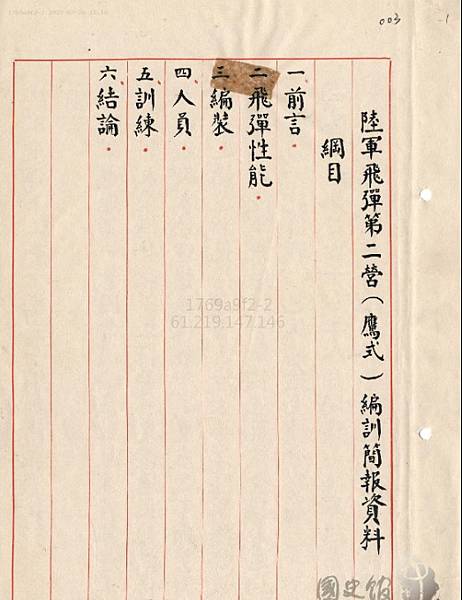 003
1
陸軍飛彈第二營(鷹式)編訓簡報資料
綱目
一前言
二飛彈性能
三編裝
四人員
五訓練
六結論
1769a9f2-2
61.219.147.146
國史館